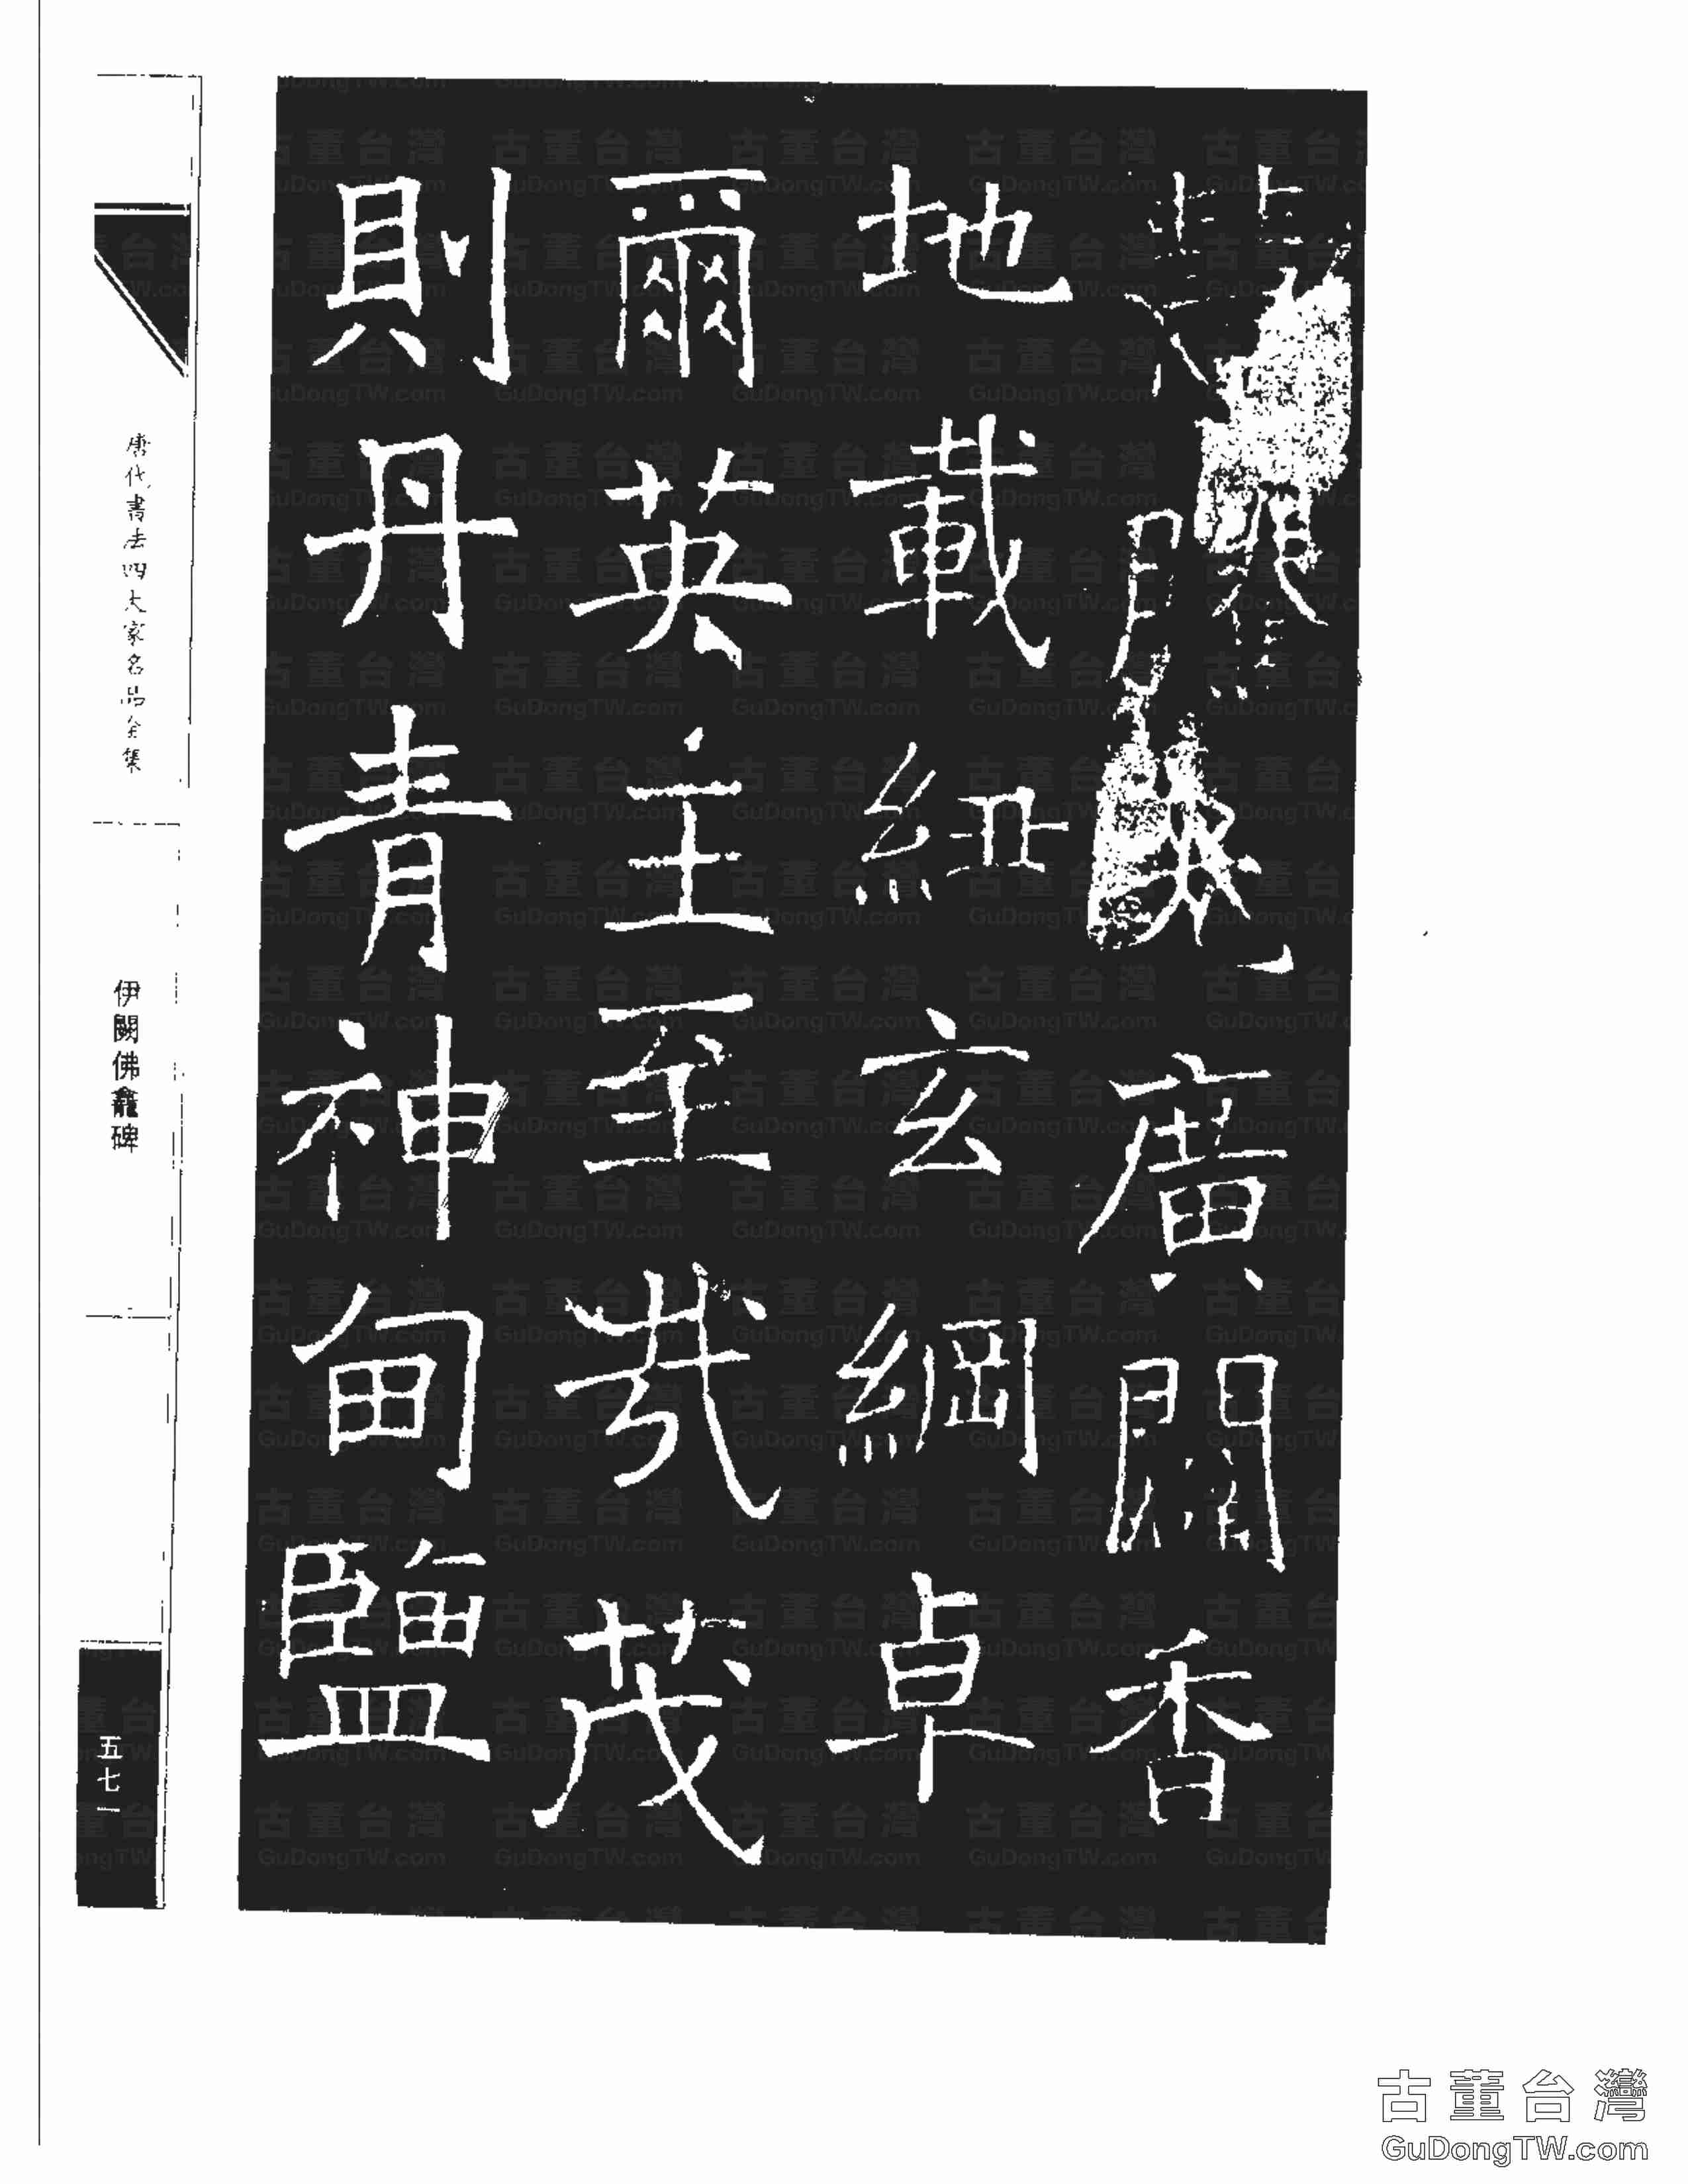 廣闢香
地載紐玄綱卓
爾英主至哉茂
則丹青神甸鹽
唐代書法四大家名品全集
伊闕佛龕碑
五七一
古董台灣
GuDongTW.com